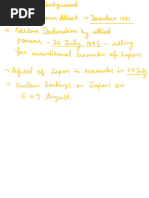 Background
Attack → December 1941
→ Potsdam Declaration by allied
powers - 26 July 1945 - calling
for unconditional surrender of Japan
→ Refusal of Japan to surrender in 29 July
→ Nuclear Bombings on Japan on
6 & 9 August